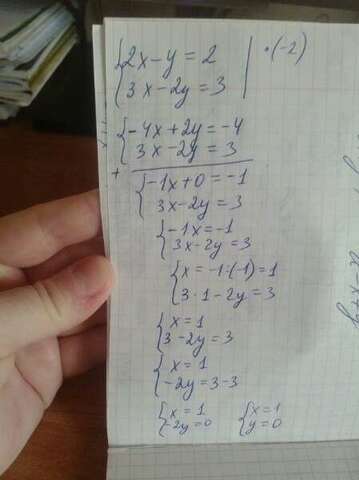 {2x-y=2 | ·(-2)
3x-2y=3
{-4x+2y=-4
3x-2y=3
+
{-1x+0=-1
3x-2y=3
{-1x=-1
3x-2y=3
{x=-1:(-1)=1
3·1-2y=3
{x=1
3-2y=3
{x=1
-2y=3-3
{x=1 {x=1
-2y=0 y=0